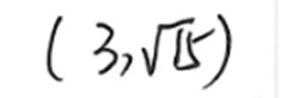 (3,√15)